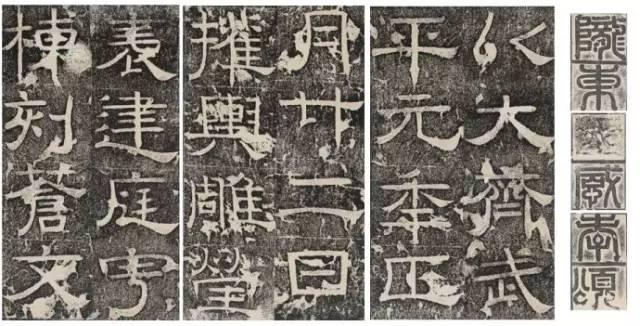 隴東感孝頌
以大齊武
平元年正
月廿二日
攉輿雕瑩
表建庭宇
棟刻蒼文